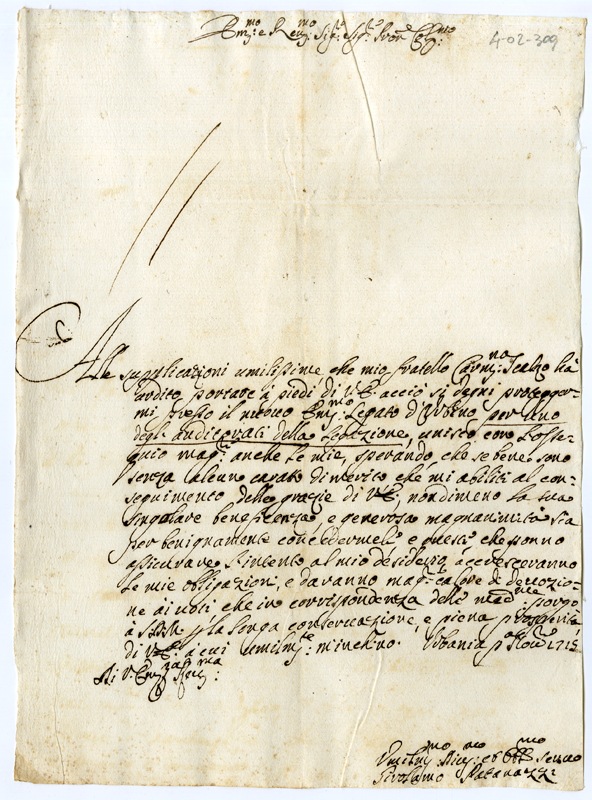 Em.mo e Rev.mo Sig.r e Sig.r Pron Col.mo
402-309
Alle supplicazioni umilissime che mio fratello Carm.no Scalzo hà
ardito portare à piedi di V.E. acciò si degni protegger-
mi presso il nuovo Em.mo Legato d'Urbino per uno
degl'audit. della Legazione, unisco con l'osse-
quio mag.e anche le mie, sperando, che se bene sono
senza alcuno capato di merito che mi abiliti al con-
seguimento delle grazie di V.E., nondimeno la sua
singolare beneficenza, e generosa magnanimità sia
per benignamente concedermele, e queste che ponno
assicurare l'intento al mio desiderio accresceranno
le mie obligazioni, e daranno mag.e calore di devozio-
ne ai voti che in corrispondenza delle med.me porgo
à S.D.M. p la longa conservazione, e piena prosperità
di V.E. à cui umilm.te m'inchino. Urbania p.o 1715
Di V. Em.za Rev.ma
Umilm.o Div.mo et Obl.mo servo
Girolamo